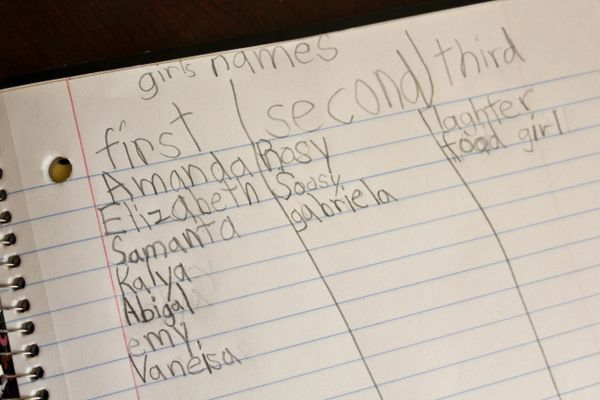 girls names
first second third
Amanda Rosy laghter
Elizabeth Soosy food girl
Samanta gabriela
Kalya
Abigal
emy
Vaneisa